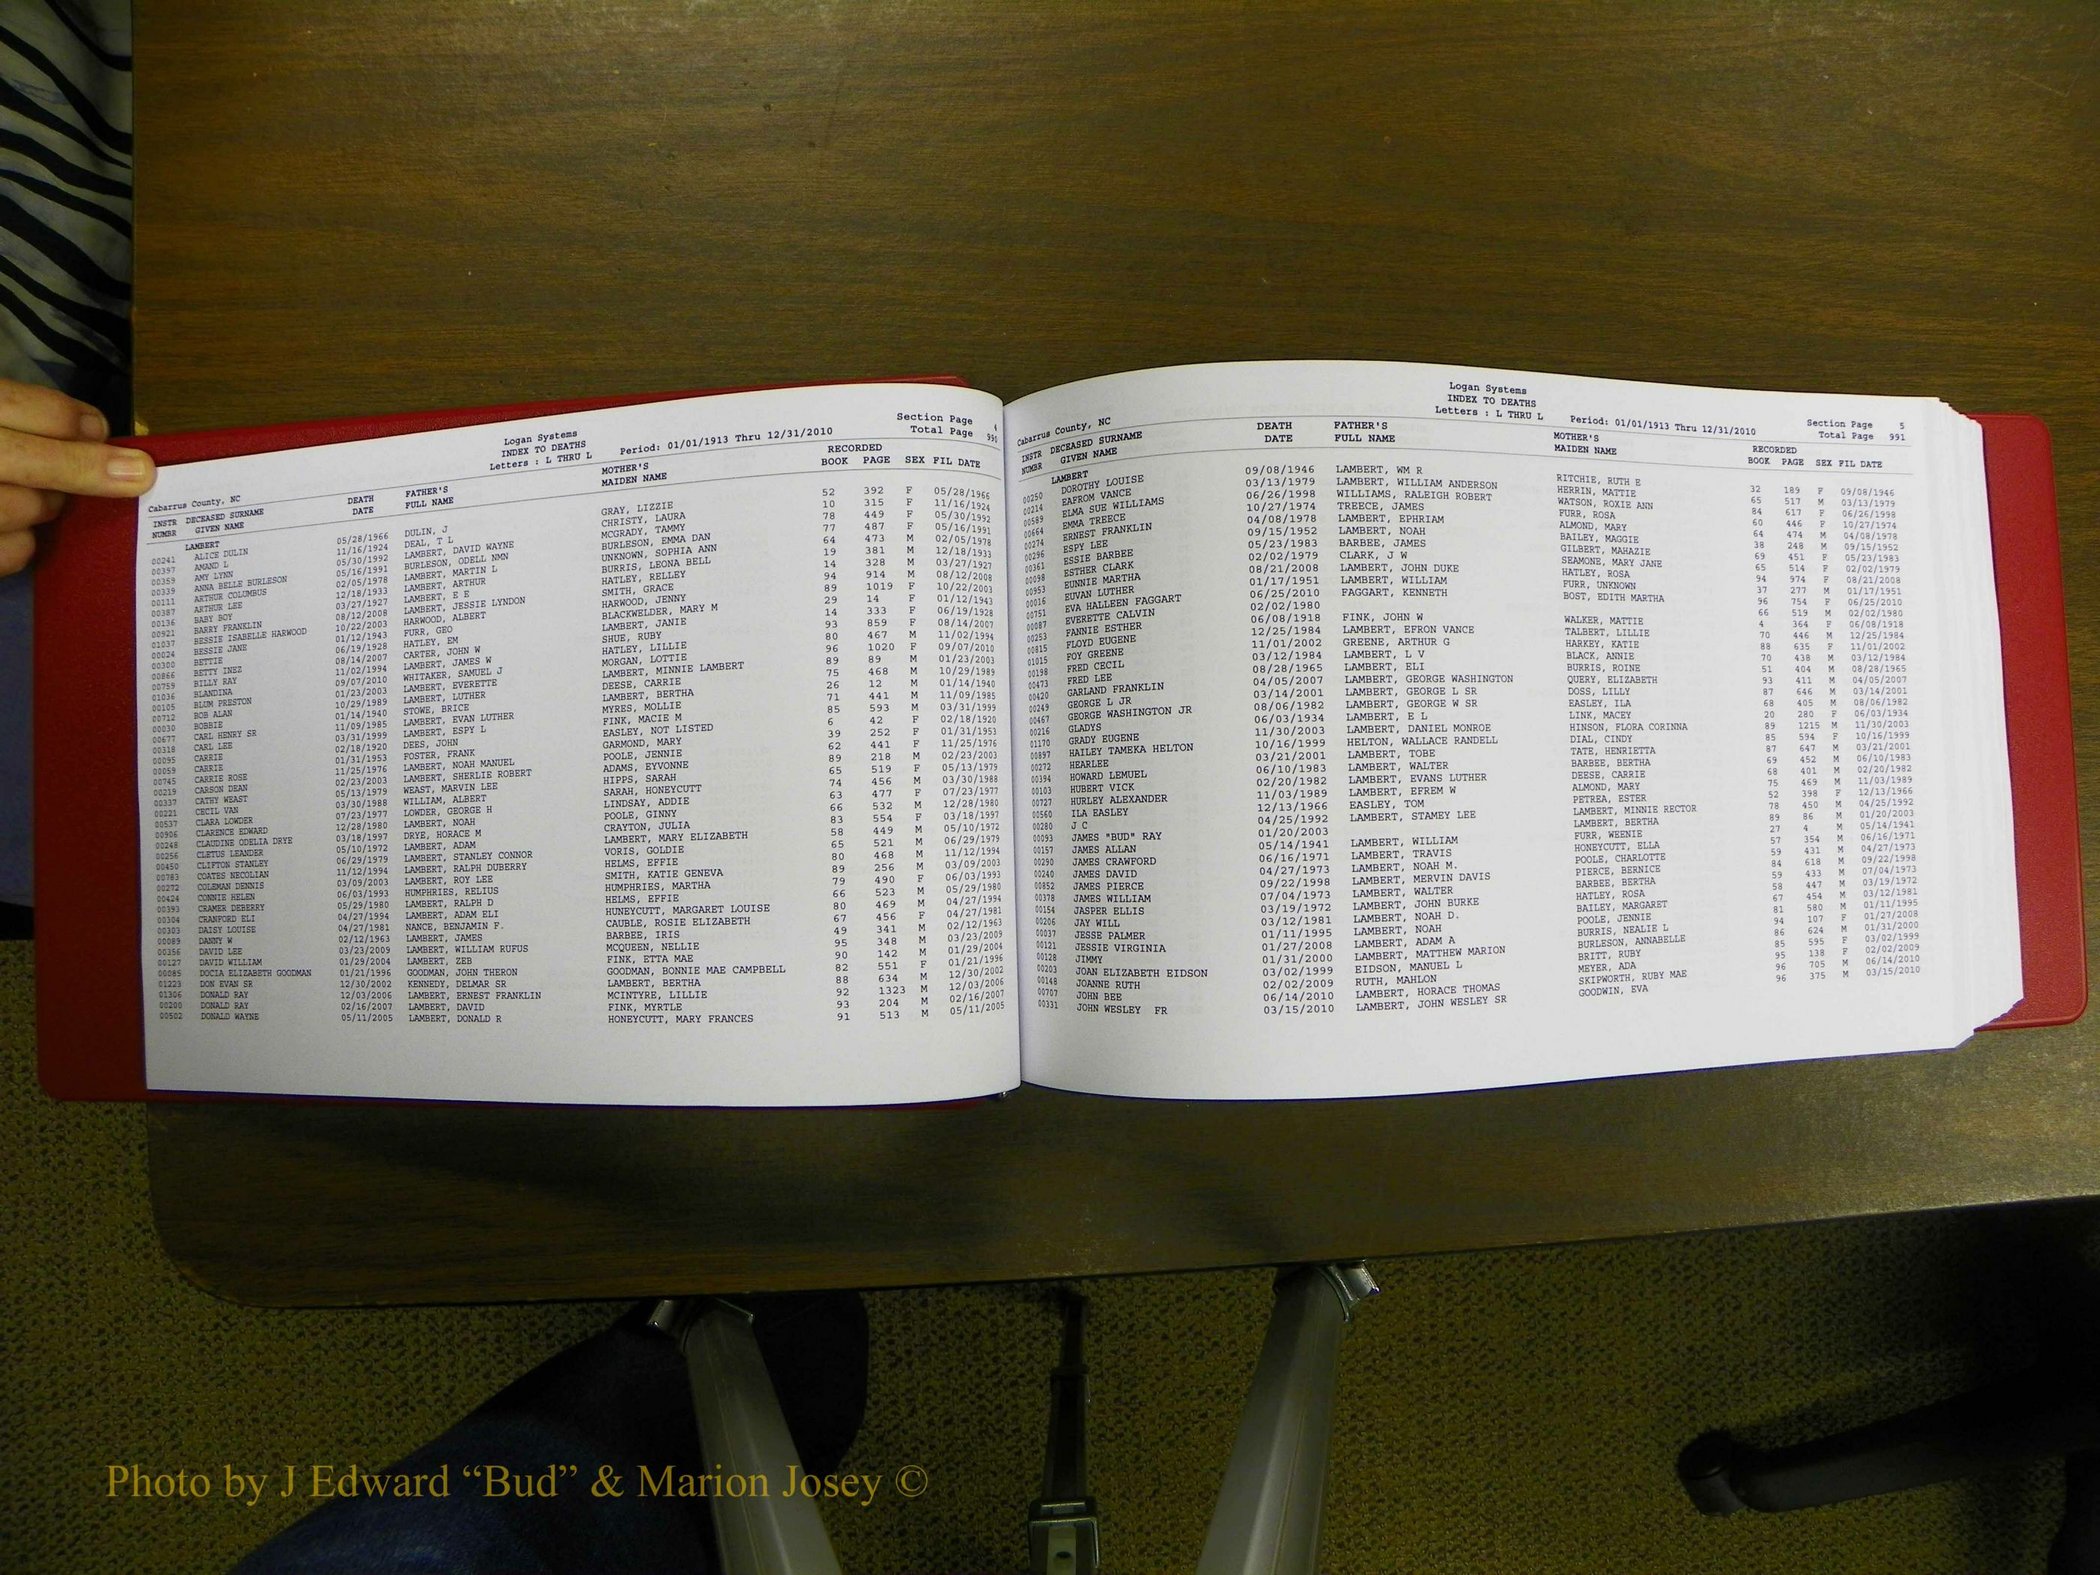 Logan Systems
INDEX TO DEATHS
Letters : L THRU L
Period: 01/01/1913 Thru 12/31/2010
Section Page 4
Total Page 990
Cabarrus County, NC
INSTR DECEASED SURNAME DEATH FATHER'S MOTHER'S RECORDED
NUMBR GIVEN NAME DATE FULL NAME MAIDEN NAME BOOK PAGE SEX FIL DATE
LAMBERT
00241 ALICE DULIN 05/28/1966 DULIN, J GRAY, LIZZIE 52 392 F 05/28/1966
00397 AMAND L 11/16/1924 DEAL, T L CHRISTY, LAURA 10 315 F 11/16/1924
00359 AMY LYNN 05/30/1992 LAMBERT, DAVID WAYNE MCGRADY, TAMMY 78 449 F 05/30/1992
00339 ANNA BELLE BURLESON 05/16/1991 BURLESON, ODELL NMN BURLESON, EMMA DAN 77 487 F 05/16/1991
00111 ARTHUR COLUMBUS 02/05/1978 LAMBERT, MARTIN L UNKNOWN, SOPHIA ANN 64 473 M 02/05/1978
00387 ARTHUR LEE 12/18/1933 LAMBERT, ARTHUR BURRIS, LEONA BELL 19 381 M 12/18/1933
00136 BABY BOY 03/27/1927 LAMBERT, E E HATLEY, RELLEY 14 328 M 03/27/1927
00921 BARRY FRANKLIN 08/12/2008 LAMBERT, JESSIE LYNDON SMITH, GRACE 94 914 M 08/12/2008
01037 BESSIE ISABELLE HARWOOD 10/22/2003 HARWOOD, ALBERT HARWOOD, JENNY 89 1019 F 10/22/2003
00024 BESSIE JANE 01/12/1943 FURR, GEO BLACKWELDER, MARY M 29 14 F 01/12/1943
00300 BETTIE 06/19/1928 HATLEY, EM LAMBERT, JANIE 14 333 F 06/19/1928
00866 BETTY INEZ 08/14/2007 CARTER, JOHN W SHUE, RUBY 93 859 F 08/14/2007
00759 BILLY RAY 11/02/1994 LAMBERT, JAMES W HATLEY, LILLIE 80 467 M 11/02/1994
01036 BLANDINA 09/07/2010 WHITAKER, SAMUEL J MORGAN, LOTTIE 96 1020 F 09/07/2010
00105 BLUM PRESTON 01/23/2003 LAMBERT, EVERETTE LAMBERT, MINNIE LAMBERT 89 89 M 01/23/2003
00712 BOB ALAN 10/29/1989 LAMBERT, LUTHER DEESE, CARRIE 75 468 M 10/29/1989
00030 BOBBIE 01/14/1940 STOWE, BRICE LAMBERT, BERTHA 26 12 M 01/14/1940
00677 CARL HENRY SR 11/09/1985 LAMBERT, EVAN LUTHER MYRES, MOLLIE 71 441 M 11/09/1985
00318 CARL LEE 03/31/1999 LAMBERT, ESPY L FINK, MACIE M 85 593 M 03/31/1999
00095 CARRIE 02/18/1920 DEES, JOHN EASLEY, NOT LISTED 6 42 F 02/18/1920
00059 CARRIE 01/31/1953 FOSTER, FRANK GARMOND, MARY 39 252 F 01/31/1953
00745 CARRIE ROSE 11/25/1976 LAMBERT, NOAH MANUEL POOLE, JENNIE 62 441 F 11/25/1976
00219 CARSON DEAN 02/23/2003 LAMBERT, SHERLIE ROBERT ADAMS, EYVONNE 89 218 M 02/23/2003
00337 CATHY WEAST 05/13/1979 WEAST, MARVIN LEE HIPPS, SARAH 65 519 F 05/13/1979
00221 CECIL VAN 03/30/1988 WILLIAM, ALBERT SARAH, HONEYCUTT 74 456 M 03/30/1988
00537 CLARA LOWDER 07/23/1977 LOWDER, GEORGE H LINDSAY, ADDIE 63 477 F 07/23/1977
00906 CLARENCE EDWARD 12/28/1980 LAMBERT, NOAH POOLE, GINNY 66 532 M 12/28/1980
00248 CLAUDINE ODELIA DRYE 03/18/1997 DRYE, HORACE M CRAYTON, JULIA 83 554 F 03/18/1997
00256 CLETUS LEANDER 05/10/1972 LAMBERT, ADAM LAMBERT, MARY ELIZABETH 58 449 M 05/10/1972
00450 CLIFTON STANLEY 06/29/1979 LAMBERT, STANLEY CONNOR VORIS, GOLDIE 65 521 M 06/29/1979
00783 COATES NECOLIAN 11/12/1994 LAMBERT, RALPH DUBERRY HELMS, EFFIE 80 468 M 11/12/1994
00272 COLEMAN DENNIS 03/09/2003 LAMBERT, ROY LEE SMITH, KATIE GENEVA 89 256 M 03/09/2003
00424 CONNIE HELEN 06/03/1993 HUMPHRIES, RELIUS HUMPHRIES, MARTHA 79 490 F 06/03/1993
00393 CRAMER DEBERRY 05/29/1980 LAMBERT, RALPH D HELMS, EFFIE 66 523 M 05/29/1980
00304 CRANFORD ELI 04/27/1994 LAMBERT, ADAM ELI HUNEYCUTT, MARGARET LOUISE 80 469 M 04/27/1994
00303 DAISY LOUISE 04/27/1981 NANCE, BENJAMIN F. CAUBLE, ROSIE ELIZABETH 67 456 F 04/27/1981
00089 DANNY W 02/12/1963 LAMBERT, JAMES BARBEE, IRIS 49 341 M 02/12/1963
00356 DAVID LEE 03/23/2009 LAMBERT, WILLIAM RUFUS MCQUEEN, NELLIE 95 348 M 03/23/2009
00127 DAVID WILLIAM 01/29/2004 LAMBERT, ZEB FINK, ETTA MAE 90 142 M 01/29/2004
00085 DOCIA ELIZABETH GOODMAN 01/21/1996 GOODMAN, JOHN THERON GOODMAN, BONNIE MAE CAMPBELL 82 551 F 01/21/1996
01223 DON EVAN SR 12/30/2002 KENNEDY, DELMAR SR LAMBERT, BERTHA 88 634 M 12/30/2002
01306 DONALD RAY 12/03/2006 LAMBERT, ERNEST FRANKLIN MCINTYRE, LILLIE 92 1323 M 12/03/2006
00200 DONALD RAY 02/16/2007 LAMBERT, DAVID FINK, MYRTLE 93 204 M 02/16/2007
00502 DONALD WAYNE 05/11/2005 LAMBERT, DONALD R HONEYCUTT, MARY FRANCES 91 513 M 05/11/2005
Logan Systems
INDEX TO DEATHS
Letters : L THRU L
Period: 01/01/1913 Thru 12/31/2010
Section Page 5
Total Page 991
Cabarrus County, NC
INSTR DECEASED SURNAME DEATH FATHER'S MOTHER'S RECORDED
NUMBR GIVEN NAME DATE FULL NAME MAIDEN NAME BOOK PAGE SEX FIL DATE
LAMBERT
00250 DOROTHY LOUISE 09/08/1946 LAMBERT, WM R RITCHIE, RUTH E 32 189 F 09/08/1946
00214 EAFROM VANCE 03/13/1979 LAMBERT, WILLIAM ANDERSON HERRIN, MATTIE 65 517 M 03/13/1979
00589 ELMA SUE WILLIAMS 06/26/1998 WILLIAMS, RALEIGH ROBERT WATSON, ROXIE ANN 84 617 F 06/26/1998
00664 EMMA TREECE 10/27/1974 TREECE, JAMES FURR, ROSA 60 446 F 10/27/1974
00274 ERNEST FRANKLIN 04/08/1978 LAMBERT, EPHRIAM ALMOND, MARY 64 474 M 04/08/1978
00296 ESPY LEE 09/15/1952 LAMBERT, NOAH BAILEY, MAGGIE 38 248 M 09/15/1952
00361 ESSIE BARBEE 05/23/1983 BARBEE, JAMES GILBERT, MAHAZIE 69 451 F 05/23/1983
00098 ESTHER CLARK 02/02/1979 CLARK, J W SEAMONE, MARY JANE 65 514 F 02/02/1979
00953 EUNNIE MARTHA 08/21/2008 LAMBERT, JOHN DUKE HATLEY, ROSA 94 974 F 08/21/2008
00016 EUVAN LUTHER 01/17/1951 LAMBERT, WILLIAM FURR, UNKNOWN 37 277 M 01/17/1951
00751 EVA HALLEEN FAGGART 06/25/2010 FAGGART, KENNETH BOST, EDITH MARTHA 96 754 F 06/25/2010
00087 EVERETTE CALVIN 02/02/1980 66 519 M 02/02/1980
00253 FANNIE ESTHER 06/08/1918 FINK, JOHN W WALKER, MATTIE 4 364 F 06/08/1918
00815 FLOYD EUGENE 12/25/1984 LAMBERT, EFRON VANCE TALBERT, LILLIE 70 446 M 12/25/1984
01015 FOY GREENE 11/01/2002 GREENE, ARTHUR G HARKEY, KATIE 88 635 F 11/01/2002
00198 FRED CECIL 03/12/1984 LAMBERT, L V BLACK, ANNIE 70 438 M 03/12/1984
00473 FRED LEE 08/28/1965 LAMBERT, ELI BURRIS, ROINE 51 404 M 08/28/1965
00420 GARLAND FRANKLIN 04/05/2007 LAMBERT, GEORGE WASHINGTON QUERY, ELIZABETH 93 411 M 04/05/2007
00249 GEORGE L JR 03/14/2001 LAMBERT, GEORGE L SR DOSS, LILLY 87 646 M 03/14/2001
00467 GEORGE WASHINGTON JR 08/06/1982 LAMBERT, GEORGE W SR EASLEY, ILA 68 405 M 08/06/1982
00216 GLADYS 06/03/1934 LAMBERT, E L LINK, MACEY 20 280 F 06/03/1934
01170 GRADY EUGENE 11/30/2003 LAMBERT, DANIEL MONROE HINSON, FLORA CORINNA 89 1215 M 11/30/2003
00897 HAILEY TAMEKA HELTON 10/16/1999 HELTON, WALLACE RANDELL DIAL, CINDY 85 594 F 10/16/1999
00272 HEARLEE 03/21/2001 LAMBERT, TOBE TATE, HENRIETTA 87 647 M 03/21/2001
00394 HOWARD LEMUEL 06/10/1983 LAMBERT, WALTER BARBEE, BERTHA 69 452 M 06/10/1983
00103 HUBERT VICK 02/20/1982 LAMBERT, EVANS LUTHER DEESE, CARRIE 68 401 M 02/20/1982
00727 HURLEY ALEXANDER 11/03/1989 LAMBERT, EFREM W ALMOND, MARY 75 469 M 11/03/1989
00560 ILA EASLEY 12/13/1966 EASLEY, TOM PETREA, ESTER 52 398 F 12/13/1966
00280 J C 04/25/1992 LAMBERT, STAMEY LEE LAMBERT, MINNIE RECTOR 78 450 M 04/25/1992
00093 JAMES "BUD" RAY 01/20/2003 LAMBERT, BERTHA 89 86 M 01/20/2003
00157 JAMES ALLAN 05/14/1941 LAMBERT, WILLIAM FURR, WEENIE 27 4 M 05/14/1941
00290 JAMES CRAWFORD 06/16/1971 LAMBERT, TRAVIS HONEYCUTT, ELLA 57 354 M 06/16/1971
00240 JAMES DAVID 04/27/1973 LAMBERT, NOAH M. POOLE, CHARLOTTE 59 431 M 04/27/1973
00852 JAMES PIERCE 09/22/1998 LAMBERT, MERVIN DAVIS PIERCE, BERNICE 84 618 M 09/22/1998
00378 JAMES WILLIAM 07/04/1973 LAMBERT, WALTER BARBEE, BERTHA 59 433 M 07/04/1973
00154 JASPER ELLIS 03/19/1972 LAMBERT, JOHN BURKE HATLEY, ROSA 58 447 M 03/19/1972
00206 JAY WILL 03/12/1981 LAMBERT, NOAH D. BAILEY, MARGARET 67 454 M 03/12/1981
00037 JESSE PALMER 01/11/1995 LAMBERT, NOAH POOLE, JENNIE 81 580 M 01/11/1995
00121 JESSIE VIRGINIA 01/27/2008 LAMBERT, ADAM A BURRIS, NEALIE L 94 107 F 01/27/2008
00128 JIMMY 01/31/2000 LAMBERT, MATTHEW MARION BURLESON, ANNABELLE 86 624 M 01/31/2000
00203 JOAN ELIZABETH EIDSON 03/02/1999 EIDSON, MANUEL L BRITT, RUBY 85 595 F 03/02/1999
00148 JOANNE RUTH 02/02/2009 RUTH, MAHLON MEYER, ADA 95 138 F 02/02/2009
00707 JOHN BEE 06/14/2010 LAMBERT, HORACE THOMAS SKIPWORTH, RUBY MAE 96 705 M 06/14/2010
00331 JOHN WESLEY FR 03/15/2010 LAMBERT, JOHN WESLEY SR GOODWIN, EVA 96 375 M 03/15/2010
Photo by J Edward “Bud” & Marion Josey ©